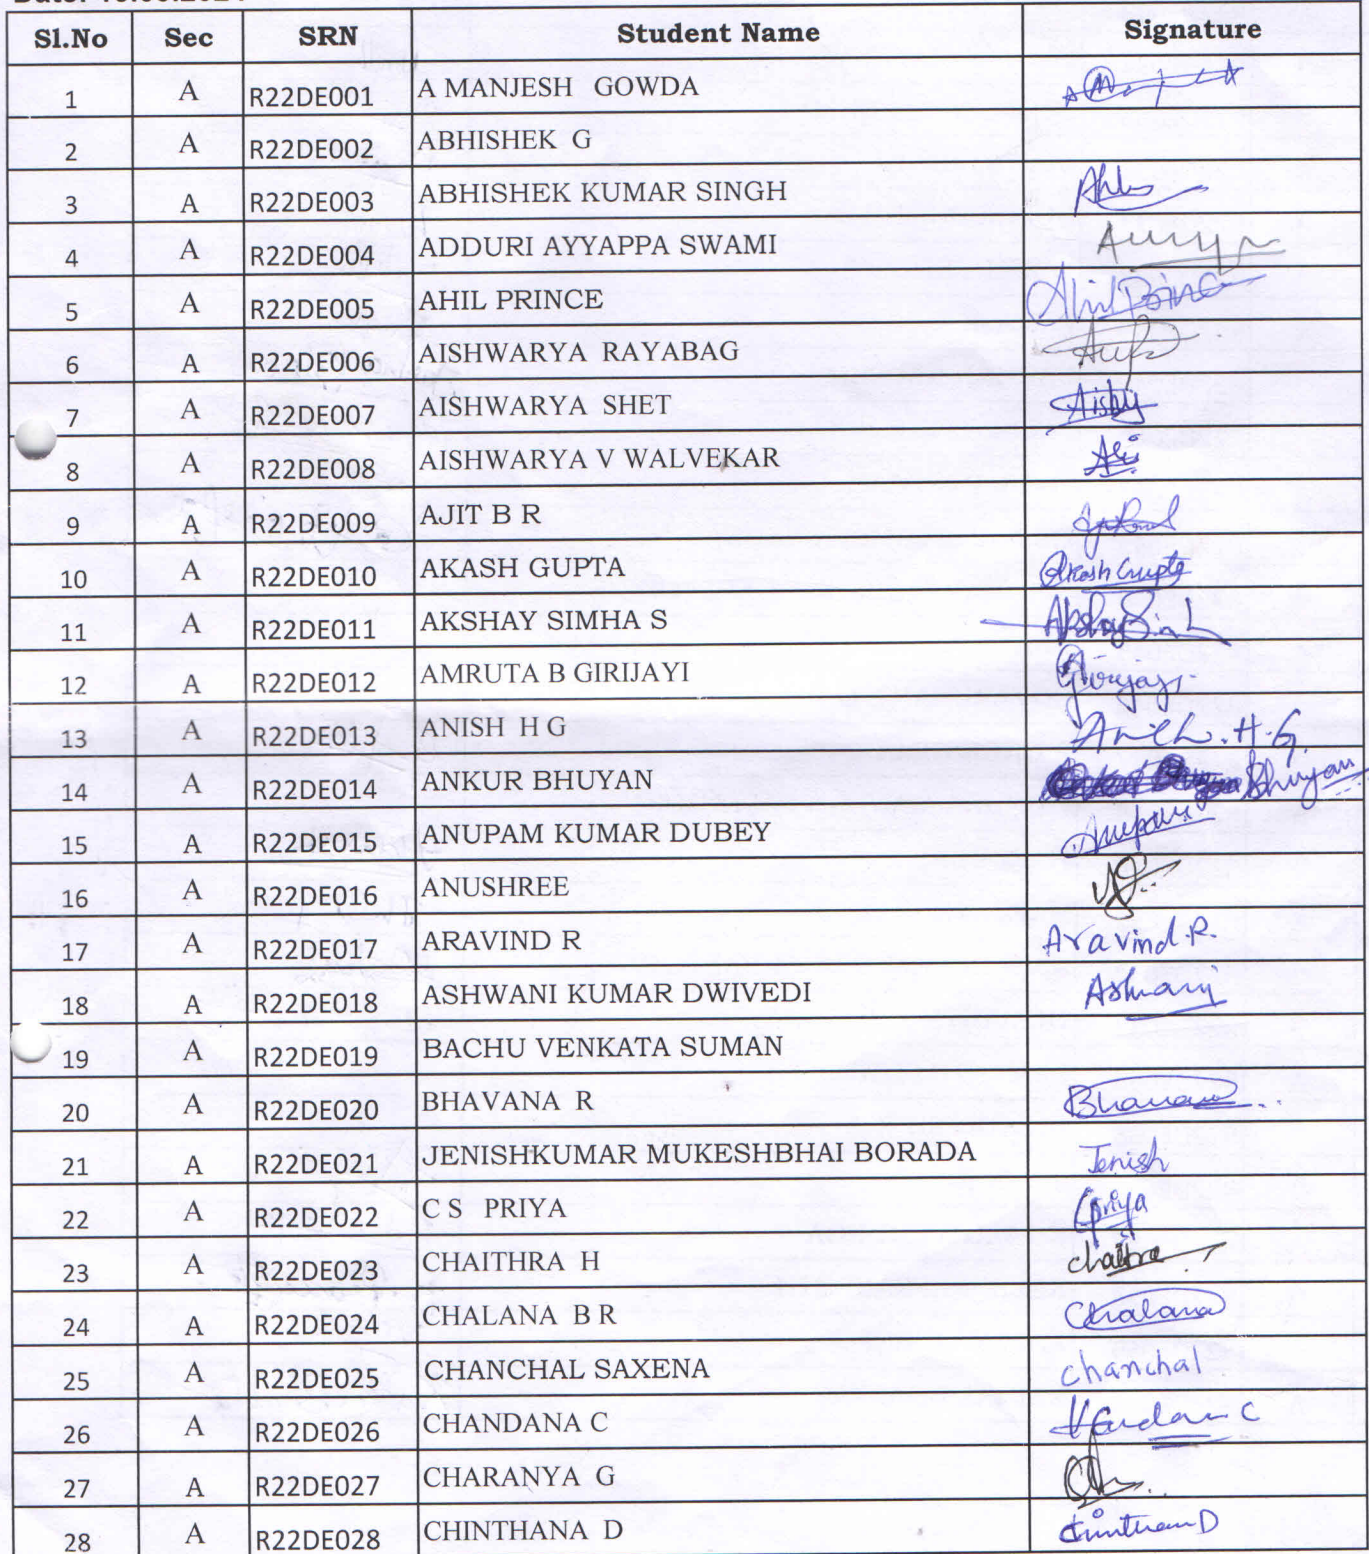 Sl.No Sec SRN Student Name Signature
1 A R22DE001 A MANJESH GOWDA
2 A R22DE002 ABHISHEK G
3 A R22DE003 ABHISHEK KUMAR SINGH
4 A R22DE004 ADDURI AYYAPPA SWAMI
5 A R22DE005 AHIL PRINCE Ahil Prince
6 A R22DE006 AISHWARYA RAYABAG
7 A R22DE007 AISHWARYA SHET Aishy
8 A R22DE008 AISHWARYA V WALVEKAR
9 A R22DE009 AJIT B R
10 A R22DE010 AKASH GUPTA Akash Gupta
11 A R22DE011 AKSHAY SIMHA S
12 A R22DE012 AMRUTA B GIRIJAYI
13 A R22DE013 ANISH H G H.G.
14 A R22DE014 ANKUR BHUYAN Bhuyan
15 A R22DE015 ANUPAM KUMAR DUBEY Anupam
16 A R22DE016 ANUSHREE
17 A R22DE017 ARAVIND R Aravind.R.
18 A R22DE018 ASHWANI KUMAR DWIVEDI Ashwani
19 A R22DE019 BACHU VENKATA SUMAN
20 A R22DE020 BHAVANA R Bhavana
21 A R22DE021 JENISHKUMAR MUKESHBHAI BORADA Jenish
22 A R22DE022 C S PRIYA Priya
23 A R22DE023 CHAITHRA H chaithra
24 A R22DE024 CHALANA B R Chalana
25 A R22DE025 CHANCHAL SAXENA chanchal
26 A R22DE026 CHANDANA C
27 A R22DE027 CHARANYA G
28 A R22DE028 CHINTHANA D